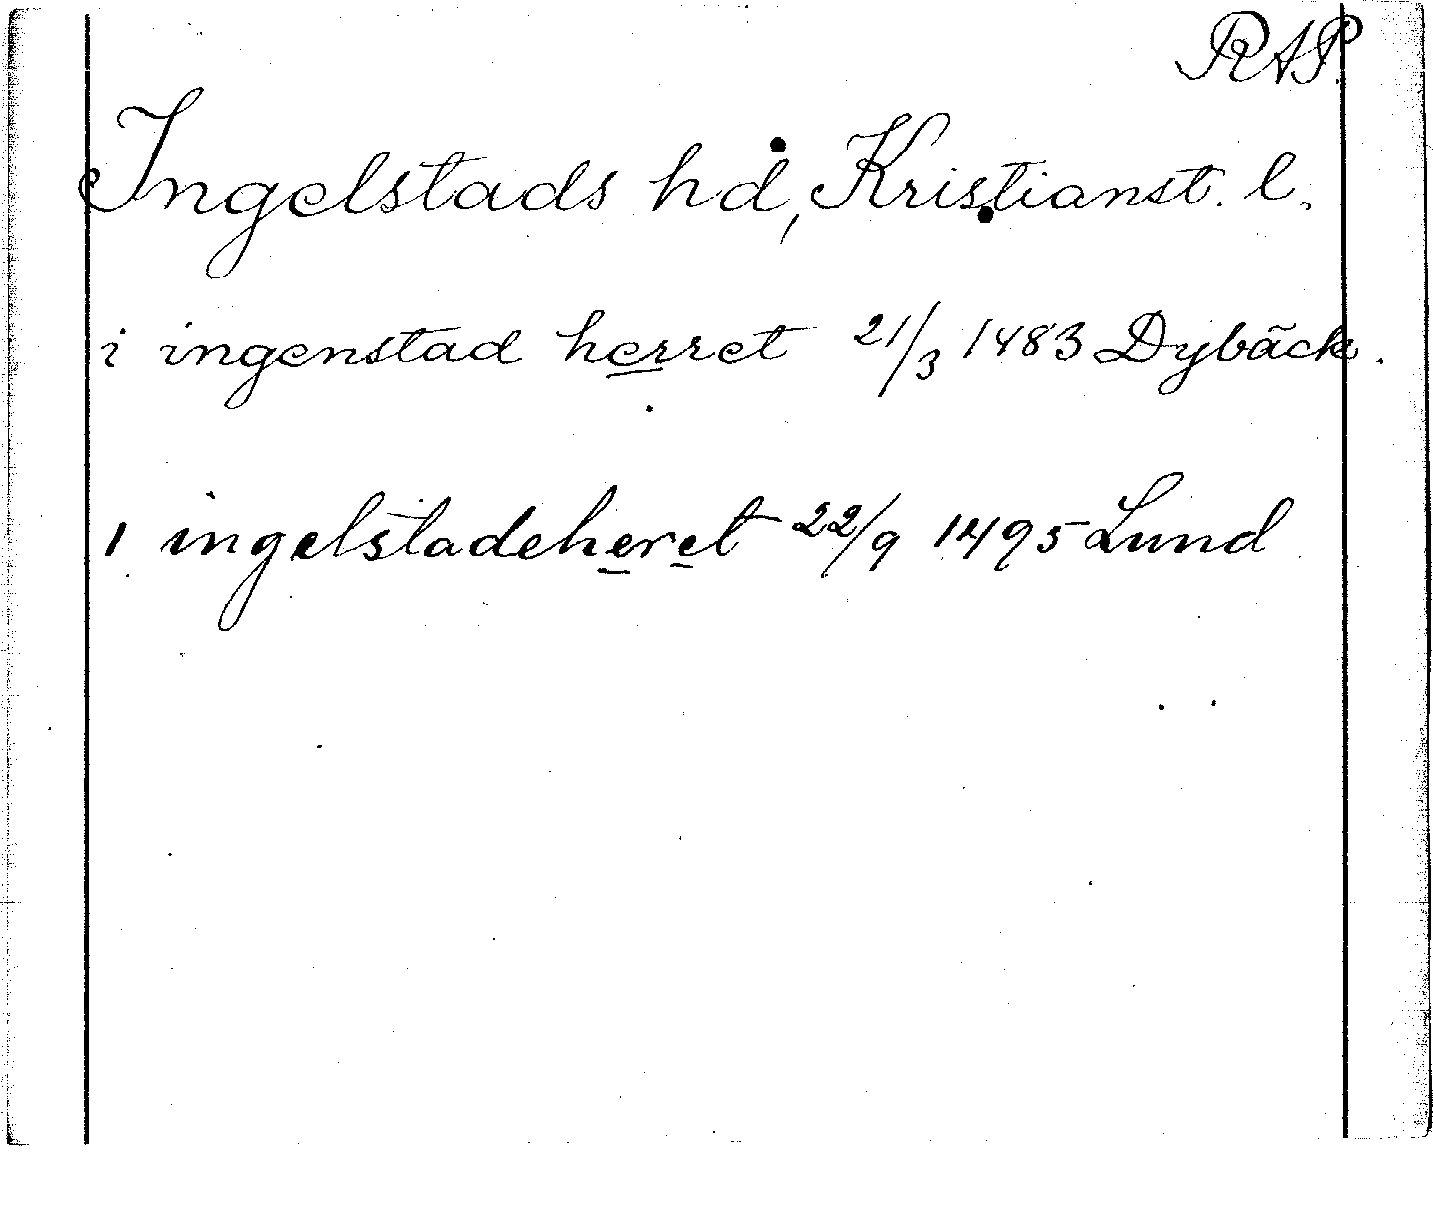 RAP.
Ingelstads hd, Kristianst. l.
i ingenstad herret 21/3 1483 Dybäck.
I ingelstadeheret 22/9 1495 Lund